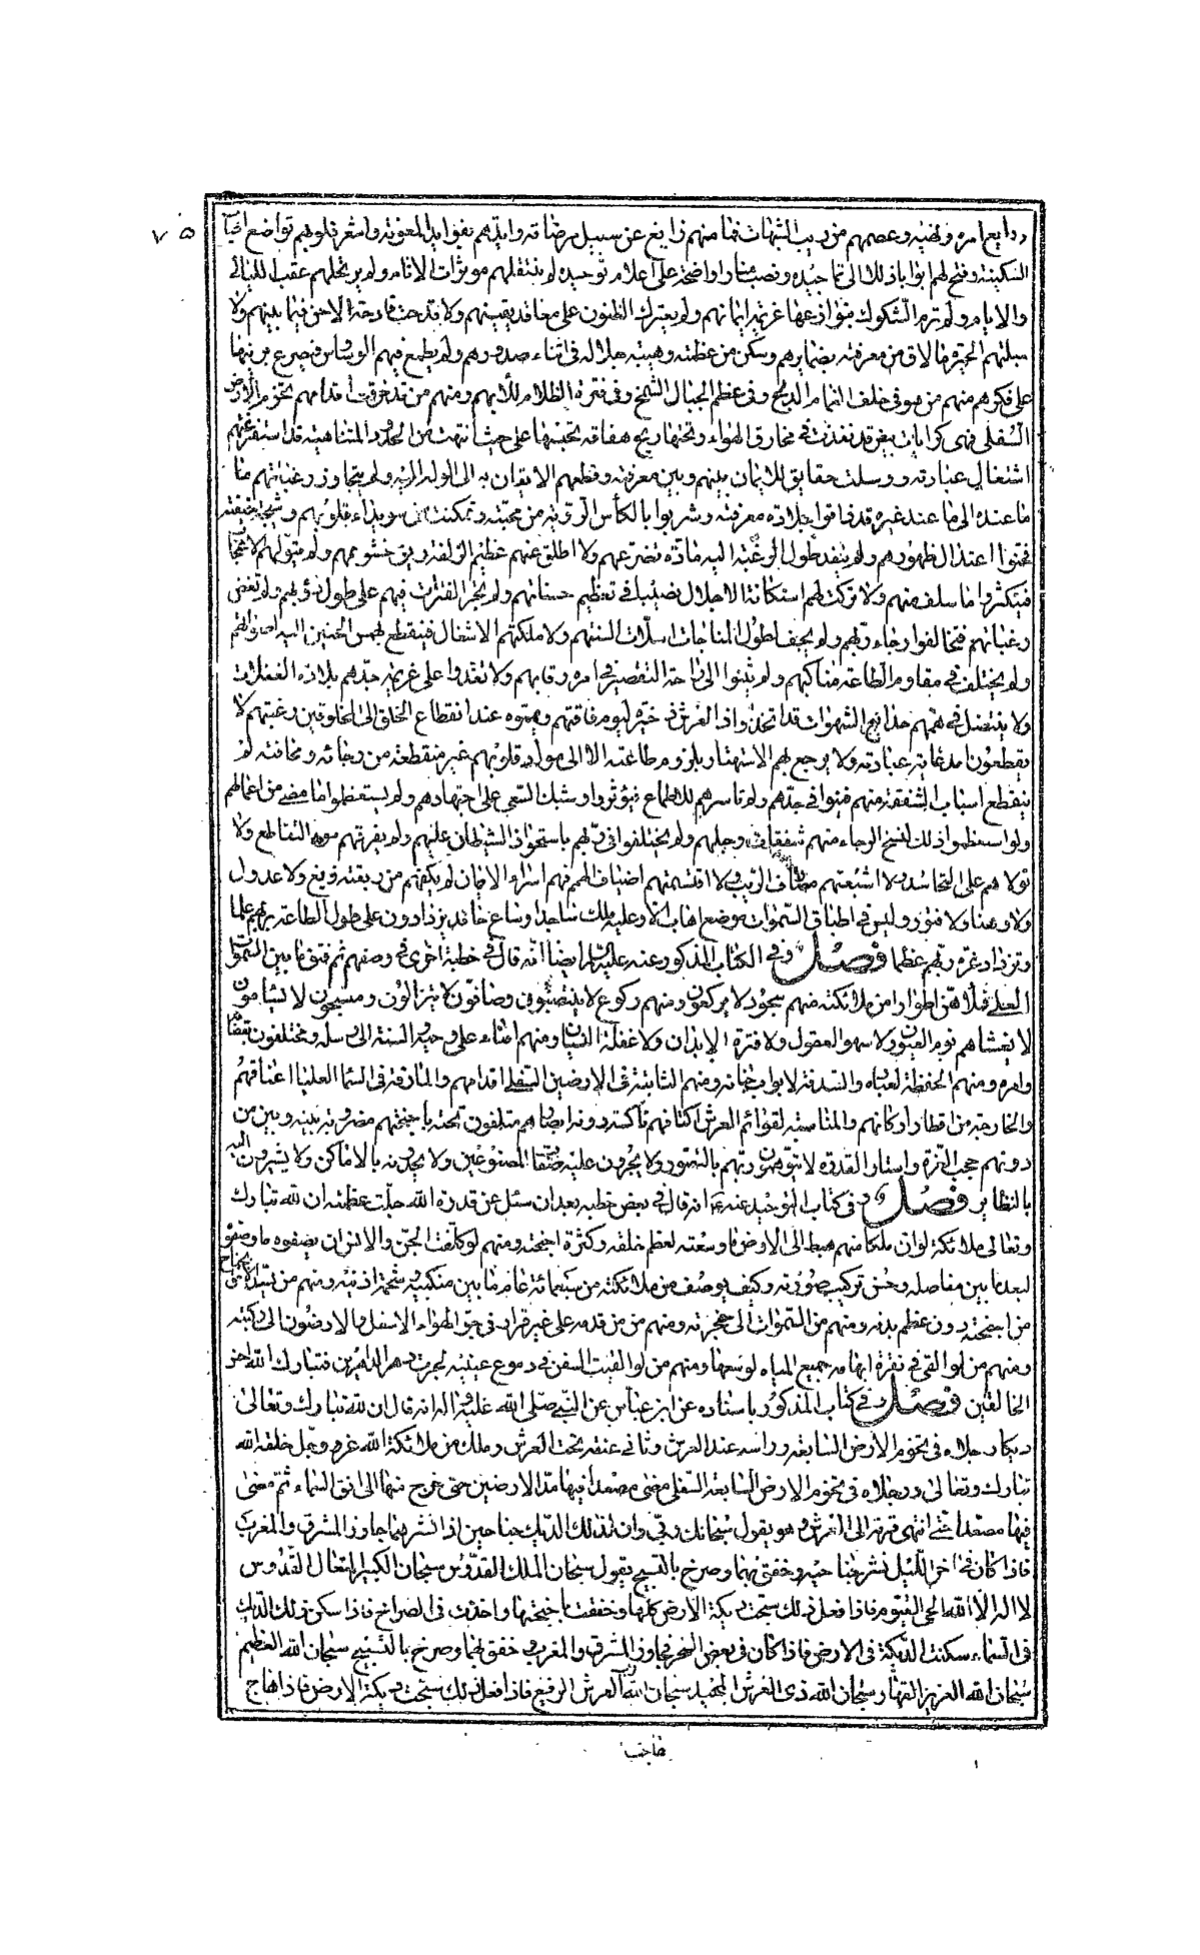 ٧٥
ودايع امره ونهيه وعصمهم من ريب الشبهات فما منهم زايغ عن سبيل مرضاته وامدهم بفوايد المعونة واشعر قلوبهم تواضع اخبات
السكينة وفتح لهم ابوابا ذللا الى تماجيده ونصب منارا واضحة على اعلام توحيده لم تثقلهم موثرات الاثام ولم يرتحلهم عقب الليالي
والايام ولم ترم الشكوك بنوازعها عزيمة ايمانهم ولم يعترك الظنون على معاقد يقينهم ولا قدحت قادحة الاحن فيما بينهم ولا
سبلتهم الحيرة ما لاق من معرفته بضمايرهم وسكن من عظمته وهيبة جلاله في اثناء صدورهم ولم يطمع فيهم الوساوس فيقترع برينها
على فكرهم منهم من هو في خلق الغمام الدلح وفي عظم الجبال الشمخ وفي فترة الظلام الابهم ومنهم من قد خرقت اقدامهم تخوم الارض
السفلى فهى كرايات بيض قد نفذت في مخارق الهواء وتحتها ريح هفافة تحبسها على حيث انتهت من الحدود المتناهية قد استفرغتهم
اشغال عبادته ووسلت حقايق الايمان بينهم وبين معرفته وقطعهم الايقان به الى الوله اليه ولم يتجاوز رغباتهم ما
ما عنده الى ما عند غيره قد ذاقوا حلاوة معرفته وشربوا بالكأس الروية من محبته وتمكنت من سويداء قلوبهم وشيجة خيفته
فحنوا اعتدال ظهورهم ولم ينفد طول الرغبة اليه مادة تضرعهم ولا اطلق عنهم عظيم الزلفة ربق خشوعهم ولم يتولهم الاعجاب
فيتكثروا ما سلف منهم ولا تركت لهم استكانة الاجلال نصيبا في تعظيم حسناتهم ولم تجر الفترات فيهم على طول دؤبهم ولم تغض
رغباتهم فيخالفوا رجاء ربهم ولم يجف لطول المناجات اسلات السنتهم ولا ملكتهم الاشغال فينقطع بهمس الحنين اليه اصواتهم
ولم يختلف في مقاوم الطاعة مناكبهم ولم يثنوا الى راحة التقصير في امره رقابهم ولا تعدوا على عزيمة جدهم بلادة الغفلات
ولا ينتضل في هممهم خدايع الشهوات قد اتخذوا ذا العرش ذخيرة ليوم فاقتهم ويمموه عند انقطاع الخلق الى المخلوقين رغبتهم لا
يقطعون امد غاية عبادته ولا يرجع بهم الاستهتار بلزوم طاعته الا الى مواد قلوبهم غير منقطعة من رجائه ومخافته لم
ينقطع اسباب الشفقة منهم فينوا في جدهم ولم تاسرهم الاطماع فيؤثروا وشيك السعي على اجتهادهم ولم يستعظموا ما مضى من اعمالهم
ولو استعظموا ذلك لنسخ الرجاء منهم شفقات وجلهم ولم يختلفوا في ربهم باستحواذ الشيطان عليهم ولم يفرقهم سوء التقاطع ولا
تولاهم غل التحاسد ولا اشعبتهم مصارف الريب ولا اقتسمتهم اخياف الهمم فهم اسراء الايمان لم يفكهم من ربقته زيغ ولا عدول
ولا ونا ولا فتور وليس في اطباق السموات موضع اهاب الا وعليه ملك ساجد او ساع حافد يزدادون على طول الطاعة بربهم علما
وتزداد عزة ربهم عظما فصل وفي الكتاب المذكور عنه عليه السلام ايضا انه قال في خطبة اخرى في وصفهم ثم فتق ما بين السموات
العلى فملاهن اطوارا من ملائكته منهم سجود لا يركعون ومنهم ركوع لا ينتصبون وصافون لا يتزايلون ومسبحون لا يسأمون
لا يغشاهم نوم العيون ولا سهو العقول ولا فترة الابدان ولا غفلة النسيان ومنهم امناء على وحيه والسنة الى رسله ومختلفون بقضائه
وامره ومنهم الحفظة لعباده والسدنة لابواب جنانه ومنهم الثابتة في الارضين السفلى اقدامهم والمارقة في السماء العليا اعناقهم
والخارجة من اقطار اركانهم والمناسبة لقوائم العرش اكتافهم ناكسة دونه ابصارهم متلفعون تحته باجنحتهم مضروبة بينهم وبين من
دونهم حجب العزة واستار القدرة لا يتوهمون ربهم بالتصوير ولا يجرون عليه صفات المصنوعين ولا يحدونه بالاماكن ولا يشيرون اليه
بالنظاير فصل وفي كتاب التوحيد عنه ع انه قال في بعض خطبه بعد ان سئل عن قدرة الله جلت عظمته ان لله تبارك
وتعالى ملائكة لو ان ملكا منهم هبط الى الارض ما وسعته لعظم خلقه وكثرة اجنحته ومنهم لو كلفت الجن والانس ان يصفوه ما وصفوه
لبعد ما بين مفاصله وحسن تركيب صورته وكيف يوصف من ملائكته من سبعمائة عام ما بين منكبيه وشحمة اذنيه ومنهم من يسد الافق بجناح
من اجنحته دون عظم بدنه ومنهم من السموات الى حجزته ومنهم من قدمه على غير قرار في جو الهواء الاسفل والارضون الى ركبته
ومنهم من لو القي في نقرة ابهامه جميع المياه لوسعها ومنهم من لو القيت السفن في دموع عينيه لجرت دهر الداهرين فتبارك الله احسن
الخالقين فصل وفي كتاب المذكور باسناده عن ابن عباس عن النبي صلى الله عليه واله انه قال ان لله تبارك وتعالى
ديكا رجلاه في تخوم الارض السابعة وراسه عند العرش وثاني عنقه تحت العرش وملك من ملائكة الله عز وجل خلقه الله
تبارك وتعالى ورجلاه في تخوم الارض السابعة السفلى مضى مصعدا فيها مد الارضين حتى خرج منها الى افق السماء ثم مضى
فيها مصعدا حتى انتهى قرنه الى العرش وهو يقول سبحانك ربي وان لذلك الديك جناحين اذا نشرهما جاوز المشرق والمغرب
فاذا كان في اخر الليل نشر جناحيه وخفق بهما وصرخ بالتسبيح يقول سبحان الملك القدوس سبحان الكبير المتعال القدوس
لا اله الا الله الحي القيوم فاذا فعل ذلك سبحت ديكة الارض كلها وخفقت باجنحتها واخذت في الصراخ فاذا سكن ذلك الديك
في السماء سكنت الديكة في الارض فاذا كان في بعض السحر نشر جناحيه فجاوز المشرق والمغرب وخفق بهما وصرخ بالتسبيح سبحان الله العظيم
سبحان الله العزيز القهار سبحان الله ذي العرش المجيد سبحان الله رب العرش الرفيع فاذا فعل ذلك سبحت ديكة الارض فاذا هاج
هاجت